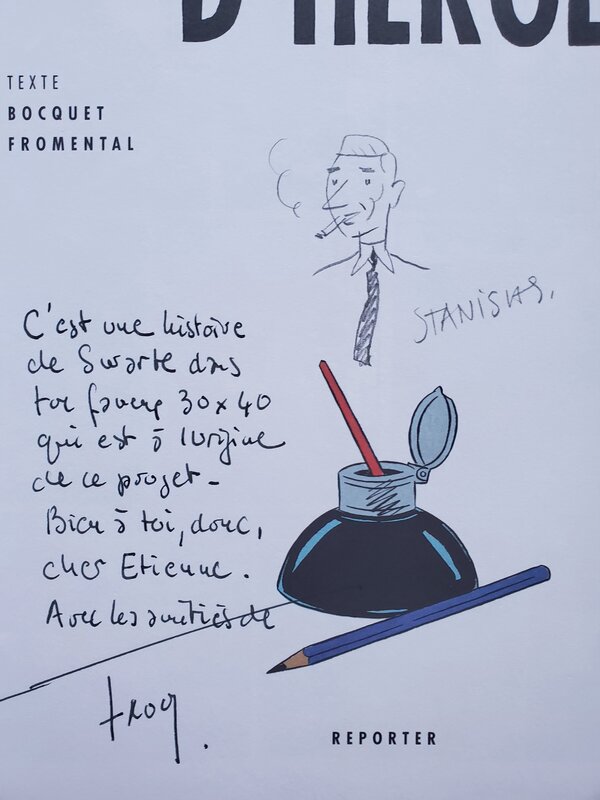 D'HERGÉ
TEXTE
BOCQUET
FROMENTAL
STANISLAS.
C'est une histoire
de Swarte dans
ton fameux 30x40
qui est à l'origine
de ce projet -
Bien à toi, donc,
cher Etienne.
Avec les amitiés de
REPORTER